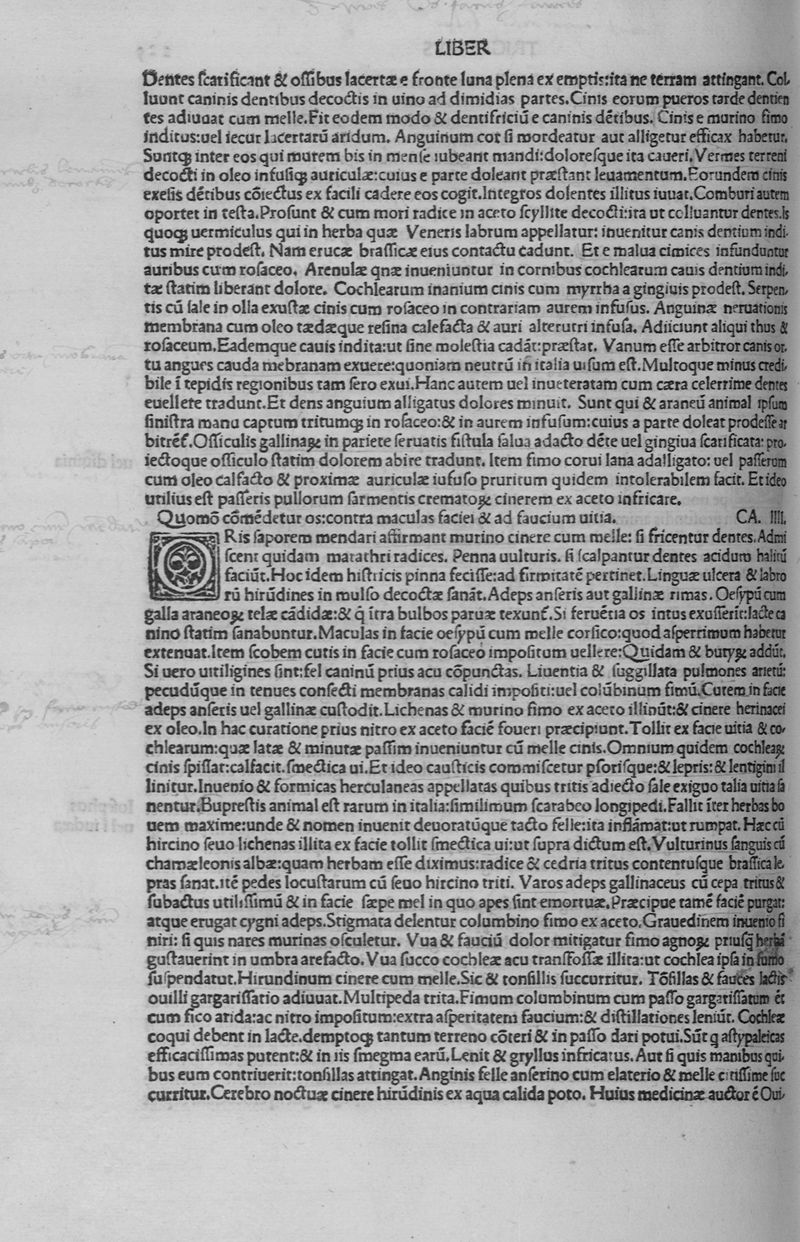 LIBER
Dentes scarificant & ossibus lacertæ e fronte luna plena exemptis:ita ne terram attingant. Col,
luunt caninis dentibus decoctis in uino ad dimidias partes.Cinis eorum pueros tarde dentien
tes adiuuat cum melle.Fit eodem modo & dentifriciū e caninis dētibus. Cinis e murino fimo
inditus:uel iecur lacertarū aridum. Anguinum cor si mordeatur aut alligetur efficax habetur.
Suntꝙ inter eos qui murem bis in mense iubeant mandi:doloresque ita caueri.Vermes terreni
decocti in oleo infusiꝙ auriculæ:cuius e parte doleant præstant leuamentum.Eorundem cinis
exesis dētibus cōiectus ex facili cadere eos cogit.Integros dolentes illitus iuuat.Comburi autem
oportet in testa.Prosunt & cum mori radice in aceto scyllite decocti:ita ut colluantur dentes.Is
quoꝙ uermiculus qui in herba quæ Veneris labrum appellatur: inuenitur cauis dentium indi,
tus mire prodest. Nam erucæ brassicæ eius contactu cadunt. Et e malua cimices infunduntur
auribus cum rosaceo. Arenulæ qnæ inueniuntur in cornibus cochlearum cauis dentium indi,
tæ statim liberant dolore. Cochlearum inanium cinis cum myrrha a gingiuis prodest. Serpen,
tis cū sale in olla exustæ cinis cum rosaceo in contrariam aurem infusus. Anguinæ neruationis
membrana cum oleo tædæque resina calefacta & auri alterutri infusa. Adiiciunt aliqui thus &
rosaceum.Eademque cauis indita:ut sine molestia cadāt:præstat. Vanum esse arbitror canis or,
tu angues cauda mebranam exuere:quoniam neutrū in italia uisum est.Multoque minus credi,
bile ī tepidis regionibus tam sero exui.Hanc autem uel inueteratam cum cæra celerrime dentes
euellere tradunt.Et dens anguium alligatus dolores minuit. Sunt qui & araneū animal ipsum
sinistra manu captum tritumꝙ in rosaceo:& in aurem infusum:cuius a parte doleat prodesse ar
bitrēt̄.Ossiculis gallinaꝝ in pariete seruatis fistula salua adacto dēte uel gingiua scarificata: pro,
iectoque ossiculo statim dolorem abire tradunt. Item fimo corui lana adalligato: uel passerum
cum oleo calfacto & proximæ auriculæ iufuso pruritum quidem intolerabilem facit. Et ideo
utilius est passeris pullorum sarmentis crematoꝝ cinerem ex aceto infricare.
Quomō cōmēdetur os:contra maculas faciei & ad faucium uitia. CA. IIII.
ORis saporem mendari affirmant murino cinere cum melle: si fricentur dentes. Admi
scent quidam marathri radices. Penna uulturis. si scalpantur dentes acidum halitū
faciūt.Hoc idem histricis pinna fecisse:ad firmitatē pertinet.Linguæ ulcera & labro
rū hirūdines in mulso decoctæ sanāt.Adeps anseris aut gallinæ rimas. Oesypū cum
galla araneoꝝ telæ cādidæ:& q̄ ītra bulbos paruæ texunt̄.Si feruētia os intus exusserīt:lacte ca
nino statim sanabuntur.Maculas in facie oesypū cum melle corsico:quod asperrimum habetur
extenuat.Item scobem cutis in facie cum rosaceo impositum uellere:Quidam & butyꝝ addūt.
Si uero uitiligines sint:fel caninū prius acu cōpunctas. Liuentia & suggillata pulmones arietū:
pecudūque in tenues consecti membranas calidi impositi:uel colūbinum fimū.Cutem in facie
adeps anseris uel gallinæ custodit.Lichenas & murino fimo ex aceto illinūt:& cinere herinacei
ex oleo.In hac curatione prius nitro ex aceto faciē foueri præcipiunt.Tollit ex facie uitia & co,
chlearum:quæ latæ & minutæ passim inueniuntur cū melle cinis.Omnium quidem cochleaꝝ
cinis spissat:calfacit.smectica ui.Et ideo causticis commiscetur psorisque:& lepris:& lentigini il
linitur.Inuenio & formicas herculaneas appellatas quibus tritis adiecto sale exiguo talia uitia sa
nentur.Buprestis animal est rarum in italia:similimum scarabeo longipedi.Fallit īter herbas bo
uem maxime:unde & nomen inuenit deuoratūque tacto felle:ita inflāmat:ut rumpat. Hæc cū
hircino seuo lichenas illita ex facie tollit smectica ui:ut supra dictum est.Vulturinus sanguis cū
chamæleonis albæ:quam herbam esse diximus:radice & cedria tritus contentusque brassica le,
pras sanat.itē pedes locustarum cū seuo hircino triti. Varos adeps gallinaceus cū cepa tritus &
subactus utilissimū & in facie sæpe mel in quo apes sint emortuæ.Præcipue tamē faciē purgat:
atque erugat cygni adeps.Stigmata delentur columbino fimo ex aceto.Grauedinem inuenio fi
niri: si quis nares murinas osculetur. Vua & fauciū dolor mitigatur fimo agnoꝝ priusꝗ herbā
gustauerint in umbra arefacto.Vua succo cochleæ acu transfossæ illita:ut cochlea ipsa in fumo
suspendatur.Hirundinum cinere cum melle.Sic & tonsillis succurritur. Tōsillas & fauces lactis
ouilli gargarissatio adiuuat.Multipeda trita.Fimum columbinum cum passo gargarissatum ēt
cum fico arida:ac nitro impositum:extra asperitatem faucium:& distillationes leniūt. Cochleæ
coqui debent in lacte.demptoꝙ tantum terreno cōteri & in passo dari potui.Sūt q astypaleicas
efficacissimas putent:& in iis smegma earū.Lenit & gryllus infricatus. Aut si quis manibus qui,
bus eum contriuerit:tonsillas attingat.Anginis felle anserino cum elaterio & melle citissime suc
curritur.Cerebro noctuæ cinere hirūdinis ex aqua calida poto. Huius medicinæ auctor ē Oui,